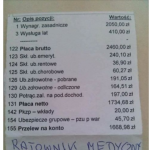 Nr Opis pozycji: Wartość:
1 Wynagr. zasadnicze 2050,00 zł
3 Wysługa lat 410,00 zł
122 Płaca brutto 2460,00 zł
123 Skł. ub. emeryt. 240,10 zł
124 Skł. ub. rentowe 36,90 zł
125 Skł. ub. chorobowe 60,27 zł
129 Ub. zdrowotne - pobrane 191,05 zł
129 Ub. zdrowotne - odliczone
130 Potrąc. zal. na pod dochod. 197,00 zł
131 Płaca netto 1734,68 zł
142 Płuzp - wkłady 20,00 zł
154 Ubezpieczenie grupowe - pzu p wał
155 Przelew na konto 1668,98 zł
RATOWNIK MEDYCZNY